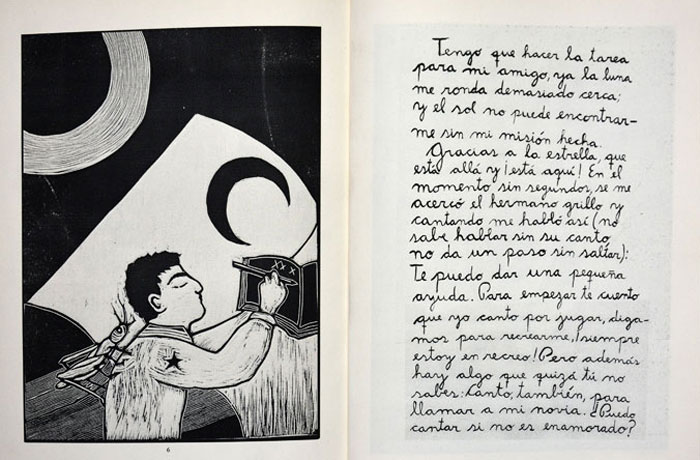 xxx
6
Tengo que hacer la tarea
para mi amigo, ya la luna
me ronda demasiado cerca;
y el sol no puede encontrar-
me sin mi misión hecha.
Gracias a la estrella, que
está allá y ¡está aquí! En el
momento sin segundos, se me
acercó el hermano grillo y
cantando me habló así (no
sabe hablar sin su canto,
no da un paso sin saltar):
Te puedo dar una pequeña
ayuda. Para empezar te cuento
que yo canto por jugar, diga-
mos para recrearme, ¡siempre
estoy en recreo! Pero además
hay algo que quizá tú no
sabes: Canto, también, para
llamar a mi novia. ¿Puedo
cantar si no es enamorado?